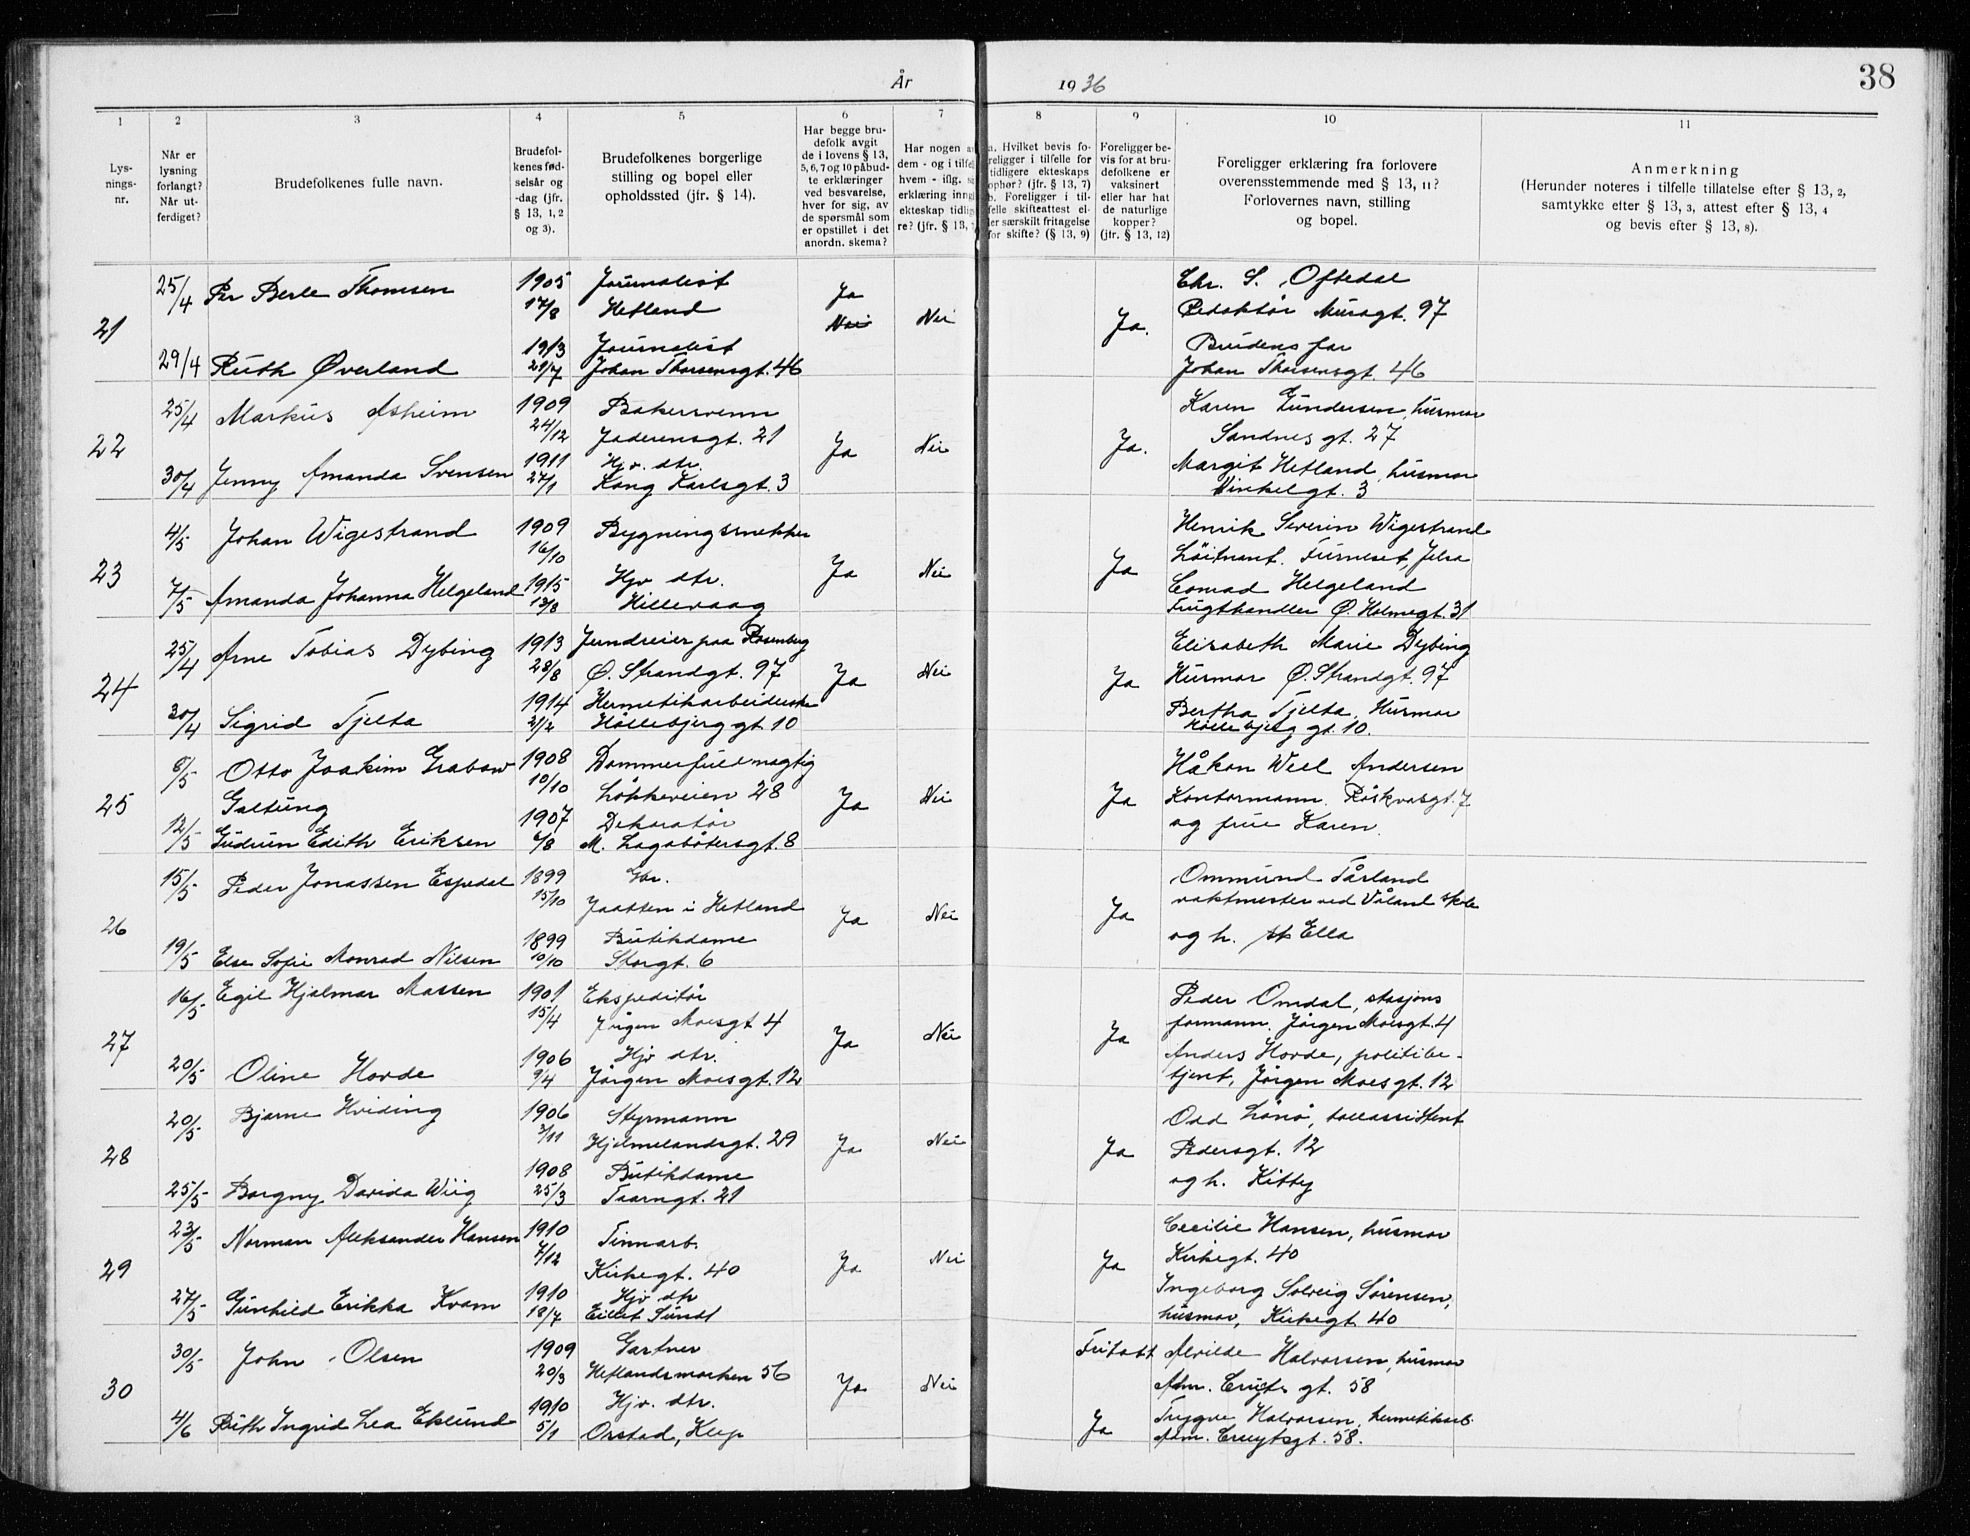 År 1936
38
1 2 3 4 5 6 7 8 9 10 11
Lys-
nings-
nr.
Når er
lysning
forlangt?
Når ut-
ferdiget?
Brudefolkenes fulle navn.
Brudefol-
kenes fød-
selsår og
-dag (jfr.
§ 13, 1, 2
og 3).
Brudefolkenes borgerlige
stilling og bopel eller
opholdssted (jfr. § 14).
Har begge bru-
defolk avgit
de i lovens § 13,
5, 6, 7 og 10 påbud-
te erklæringer
ved besvarelse,
hver for sig, av
de spørsmål som
er opstillet i det
anordn. skema?
Har nogen a
dem - og i tilfel
hvem - iflg. s
erklæring inng
ekteskap tidlig
re? (jfr. § 13,
a. Hvilket bevis fo-
religger i tilfelle for
tidligere ekteskaps
ophør? (jfr. § 13, 7)
b. Foreligger i til-
felle skifteattest el-
ler særskilt fritagelse
for skifte? (§ 13, 9)
Foreligger be-
vis for at bru-
defolkene er
vaksinert
eller har hat
de naturlige
kopper?
(jfr. § 13, 12)
Foreligger erklæring fra forlovere
overensstemmende med § 13, 11?
Forlovernes navn, stilling
og bopel.
Anmerkning
(Herunder noteres i tilfelle tillatelse efter § 13, 2,
samtykke efter § 13, 3, attest efter § 13, 4
og bevis efter § 13, 8).
21
25/4 Per Berle Thomsen 1905 Journalist
17/8 Hetland
Ja
Nei Nei Ja.
29/4 Ruth Øverland 1913 Journalist
21/7 Johan Thorsensgt. 46
Chr. S. Oftedal
Redaktør Musegt. 97
Brudens far
Johan Thorsensgt. 46
22
25/4 Markus Asheim 1909 Bakersvenn
24/12 Jaderensgt. 21
Ja Nei Ja.
30/4 Jenny Amanda Svensen 1911 Hjv. dtr.
27/1 Kong Karlsgt. 3
Karen Gundersen, husmor
Sandnesgt. 27
Margit Hetland, husmor
Vinkelgt. 3
23
4/5 Johan Wigestrand 1909 Bygningssnekker
16/10
Ja Nei Ja
7/5 Amanda Johanna Helgeland 1915 Hjv dtr.
13/8 Hillevaag
Henrik Severin Wigestrand
Løitnant. Furneset, Jelsa
Conrad Helgeland
Frugthandler Ø. Holmegt. 31
24
25/4 Arne Tobias Dybing 1913 Jerndreier paa Rosenberg
28/8 Ø. Strandgt. 97
Ja Nei Ja
30/4 Sigrid Tjelta 1914 Hermetikarbeiderske
2/2 Hållebjerggt. 10
Elisabeth Marie Dybing
Husmor Ø. Strandgt. 97
Bertha Tjelta, Husmor
Hållebjerg gt. 10.
25
8/5 Otto Joakim Grabow 1908 Dommerfuldmægtig
Galtung 10/10 Løkkeveien 28
Ja Nei Ja
12/5 Gudrun Edith Eriksen 1907 Dekoratør
4/8 M. Lagabøtersgt. 8
Håkon Weel Andersen
Kontormann. Røskvasgt. 7
og frue Karen.
26
15/5 Peder Jonassen Espedal 1899 Gbr.
15/10 Jaatten i Hetland
Ja Nei Ja
19/5 Else Sofie Monrad Nilsen 1899 Butikdame
10/10 Storgt. 6
Ommund Tårland
vaktmester ved Våland skole
og h. Ella
27
16/5 Egil Hjalmar Massen 1901 Ekspeditør
15/4 Jørgen Moesgt 4
Ja Nei Ja
20/5 Oline Hovde 1906 Hjv dtr.
9/4 Jørgen Moesgt. 12
Peder Omdal, stasjons
formann. Jørgen Moesgt. 4
Anders Hovde, politibe-
tjent, Jørgen Moesgt. 12
28
20/5 Bjarne Hviding 1906 Styrmann
3/11 Hjelmelandsgt. 29
Ja Nei Ja
25/5 Borgny Davida Wiig 1908 Butikdame
25/3 Taarngt. 21
Odd Lønø, tollassistent
Pedersgt. 12
og h. Kitty
29
23/5 Norman Aleksander Hansen 1910 Tinnarb.
7/12 Kirkegt. 40
Ja Nei Ja
27/5 Gunhild Erikka Kvam 1910 Hjv dtr
18/7 Eilert Sundt
Cecilie Hansen, husmor
Kirkegt. 40
Ingeborg Solveig Sørensen,
husmor, Kirkegt. 40
30
30/5 John Olsen 1909 Gartner
20/3 Hetlandsmarken 56
Ja Nei Fritatt
4/6 Ruth Ingrid Lea Eklund 1910 Hjv. dtr.
5/1 Orstad, Klep
Ja
Alvilde Halvorsen, husmor
Adm. Cruyts gt. 58
Trygve Halvorsen, hermetikarb.
Adm. Cruytsgt. 58.